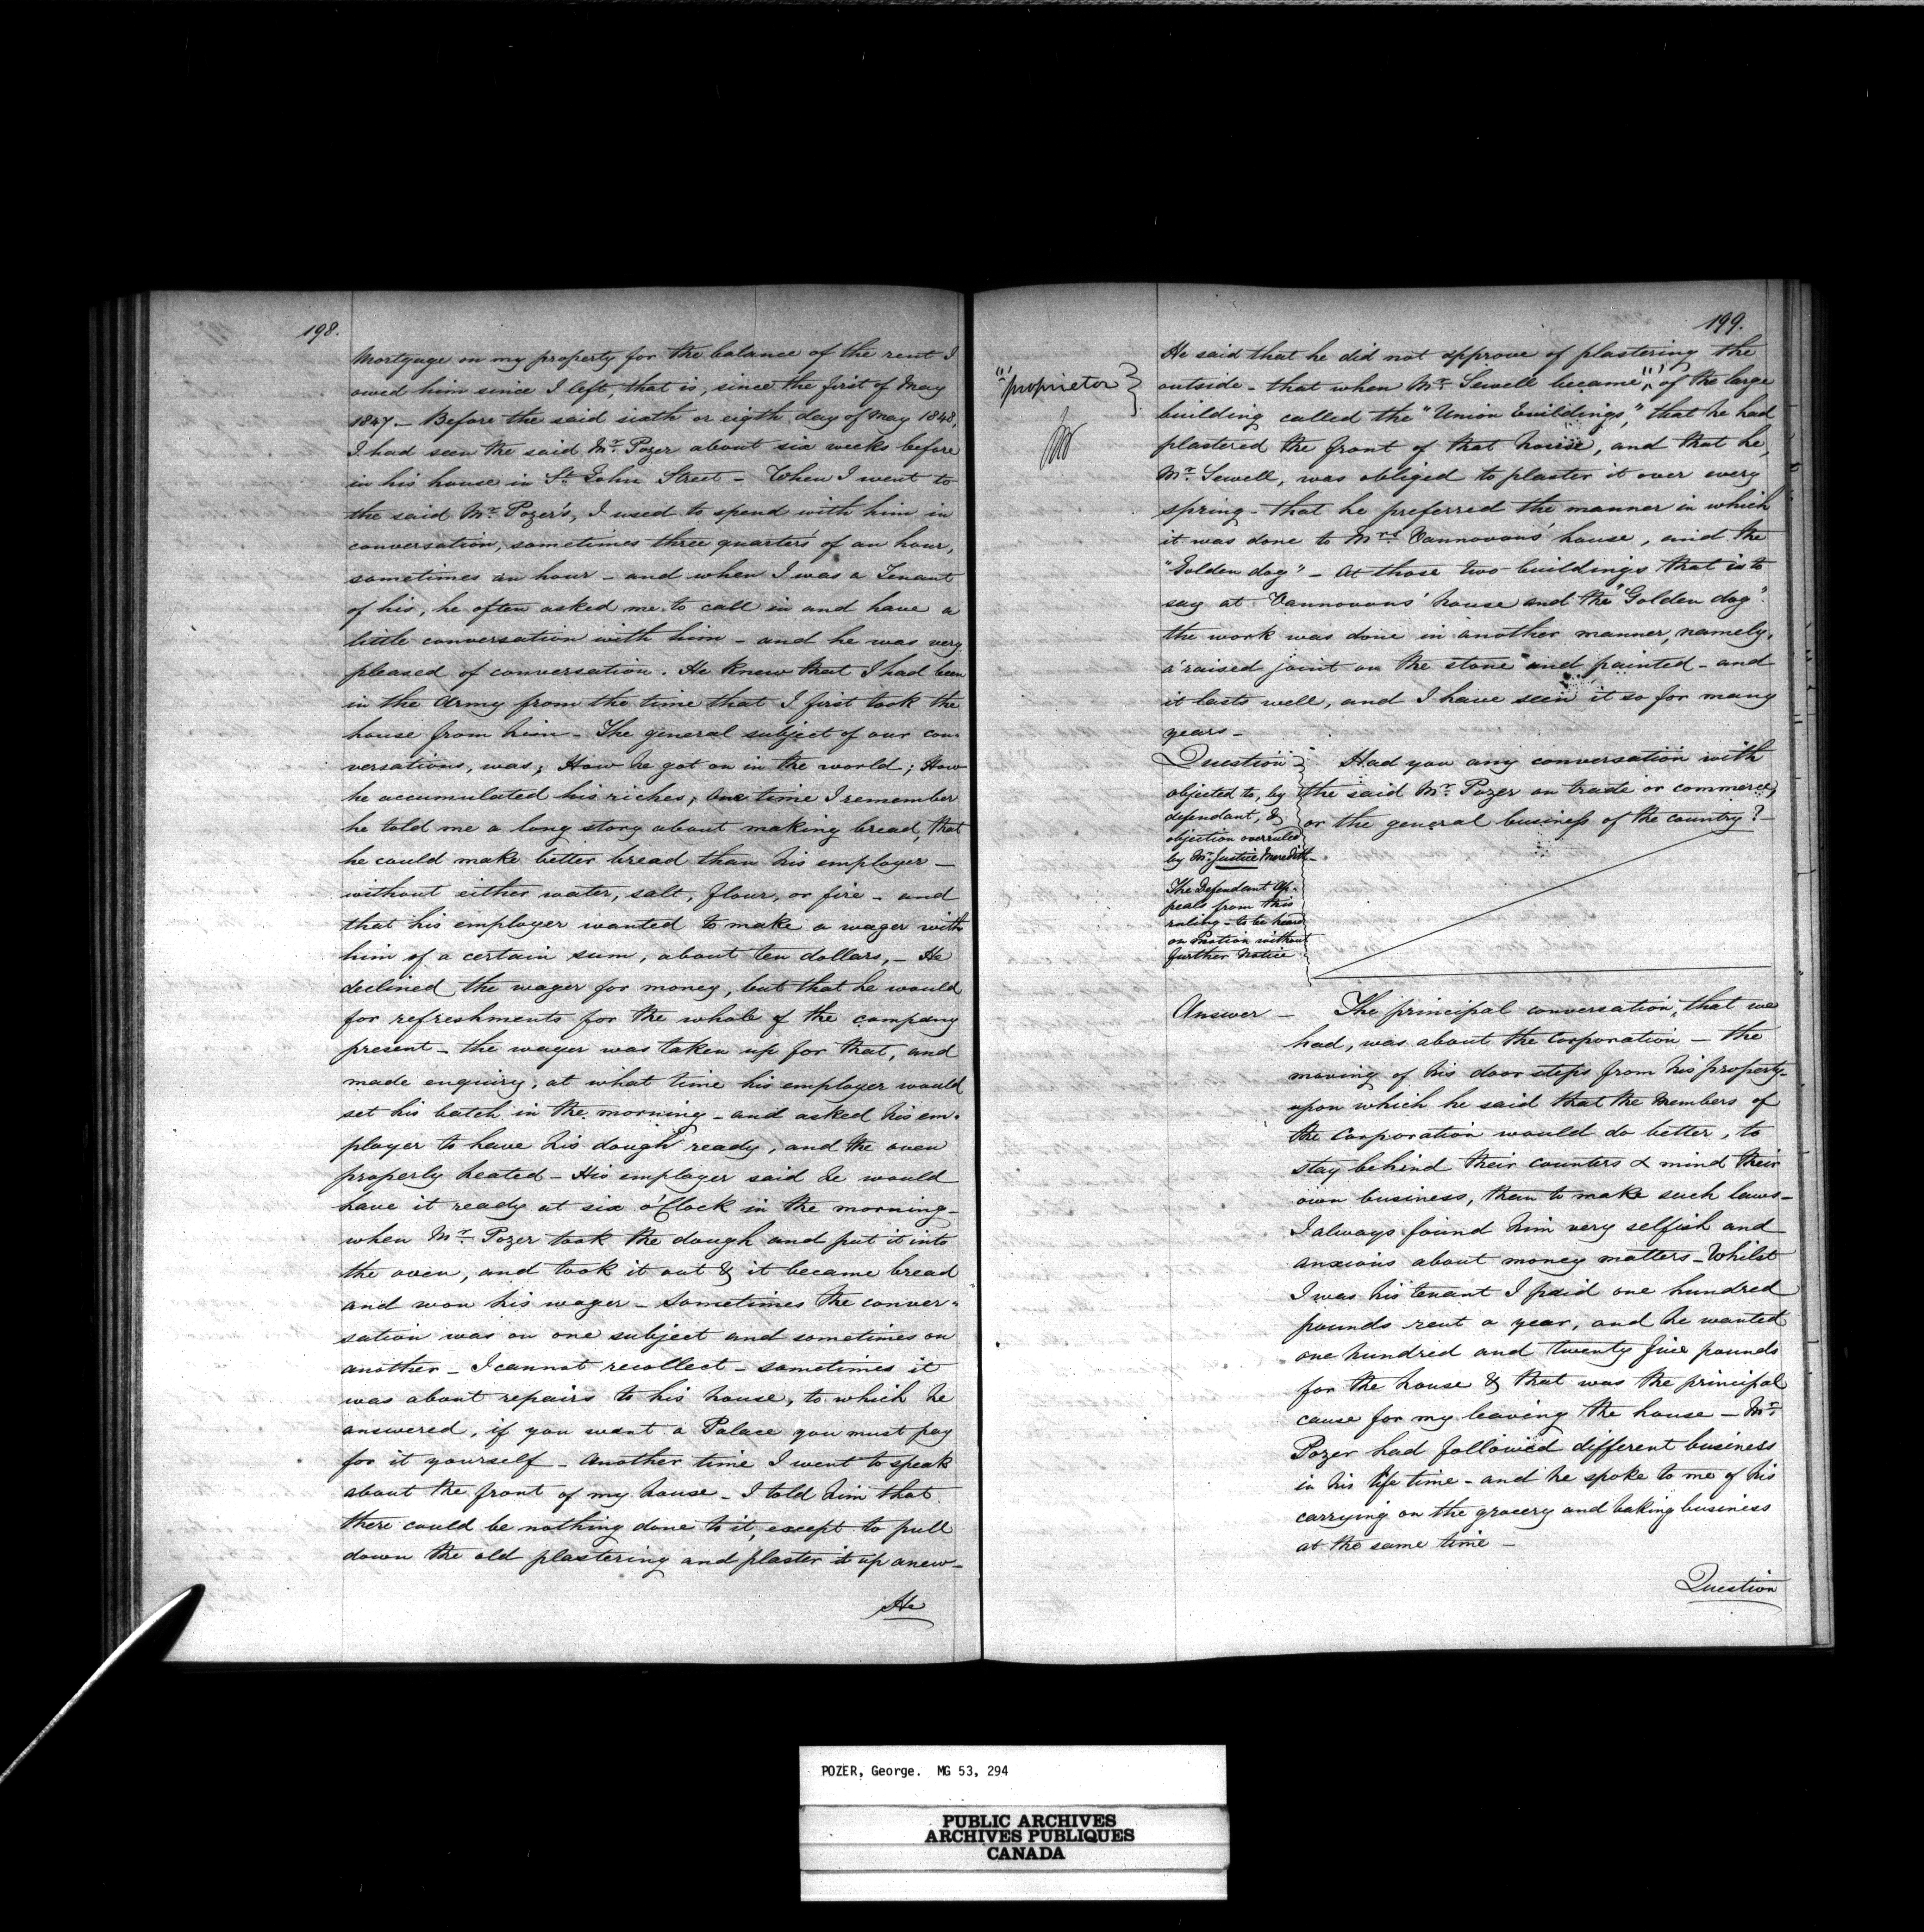 198.
Mortgage on my property for the balance of the rent I
owed him since I left, that is, since the first of May
1847 — Before the said sixth or eigth day of May 1848,
I had seen the said Mr. Pozer about six weeks before
in his house in St. John Street — When I went to
the said Mr. Pozer's, I used to spend with him in
conversation, sometimes three quarters of an hour,
sometimes an hour — and when I was a Tenant
of his, he often asked me to call in and have a
little conversation with him — and he was very
pleased of conversation. He knew that I had been
in the Army from the time that I first took the
house from him — The general subject of our con-
versations, was; How he got on in the world; How
he accumulated his riches; One time I remember
he told me a long story about making bread, that
he could make better bread than his employer —
without either water, salt, flour, or fire — and
that his employer wanted to make a wager with
him of a certain sum, about ten dollars, — He
declined the wager for money, but that he would
for refreshments for the whole of the company
present — the wager was taken up for that, and
made enquiry, at what time his employer would
set his batch in the morning — and asked his em-
ployer to have his dough ready, and the oven
properly heated — His employer said he would
have it ready at six o'Clock in the morning —
when Mr. Pozer took the dough and put it into
the oven, and took it out & it became bread
and won his wager — Sometimes the conver-
sation was on one subject and sometimes on
another — I cannot recollect — sometimes it
was about repairs to his house, to which he
answered, if you want a Palace you must pay
for it yourself — Another time I went to speak
about the front of my house — I told him that
there could be nothing done to it, except to pull
down the old plastering and plaster it up anew —
He
199.
He said that he did not approve of plastering the
outside — that when Mr. Sewell became of the large
"proprietor"
building called the "Union buildings," that he had
plastered the front of that house, and that he,
Mr. Sewell, was obliged to plaster it over every
spring — that he preferred the manner in which
it was done to Mrs. Vannovous' house, and the
"Golden dog" — At those two buildings that is to
say at Vannovous' house and the "Golden dog".
the work was done in another manner, namely,
a raised joint on the stone and painted — and
it lasts well, and I have seen it so for many
years —
Question — Had you any conversation with
the said Mr. Pozer on trade or commerce,
or the general business of the country? —
objected to, by
defendant, &
objection overruled
by Mr. Justice Meredith —
The Defendant Ap-
peals from this
ruling — to be heard
on Motion without
further Notice
Answer — The principal conversation, that we
had, was about the Corporation — the
moving of his door steps from his property —
upon which he said that the Members of
the Corporation would do better, to
stay behind their counters & mind their
own business, than to make such laws —
I always found him very selfish and
anxious about money matters — Whilst
I was his tenant I paid one hundred
pounds rent a year, and he wanted
one hundred and twenty five pounds
for the house & that was the principal
cause for my leaving the house — Mr.
Pozer had followed different business
in his life time — and he spoke to me of his
carrying on the grocery and baking business
at the same time —
Question
POZER, George. MG 53, 294
PUBLIC ARCHIVES
ARCHIVES PUBLIQUES
CANADA